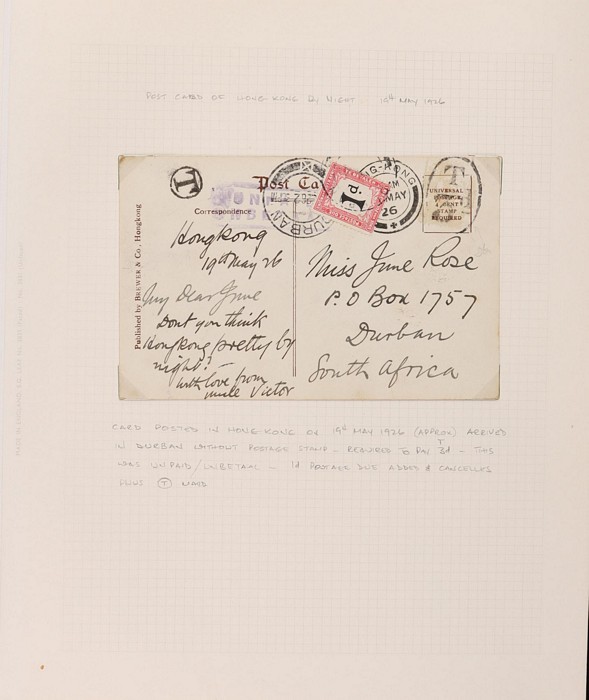 POST CARD OF HONG-KONG BY NIGHT 19th MAY 1926
T
Post Ca
Correspondence
Published by BREWER & Co., Hongkong
DURBAN
1d.
NG-KONG
MAY
26
T
UNIVERSAL
STAMP
REQUIRED
Hongkong
19th May 26
My Dear June
Dont you think
Hongkong pretty by
night? —
With love from
uncle Victor
Miss June Rose
P.O Box 1757
Durban
South Africa
CARD POSTED IN HONG-KONG ON 19th MAY 1926 (APPROX) ARRIVED
IN DURBAN WITHOUT POSTAGE STAMP - REQUIRED TO PAY T 3d - THIS
WAS UNPAID/UNBETAAL - 1d POSTAGE DUE ADDED & CANCELLED
PLUS T